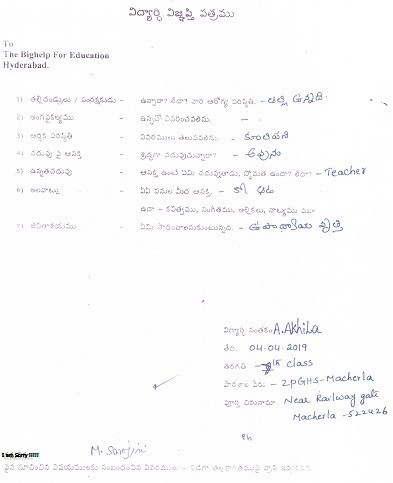 విద్యార్థి విజ్ఞప్తి పత్రము
To
The Bighelp For Education
Hyderabad.
1) తల్లిదండ్రులు / సంరక్షకుడు - ఉన్నారా? లేదా? వారి ఆరోగ్య పరిస్థితి. - తల్లి ఉన్నది
2) అంగవైకల్యము - ఉన్నచో వివరించవలెను. -
3) ఆర్థిక పరిస్థితి - వివరములు తెలుపవలెను. - కూలిపని
4) చదువు పై ఆసక్తి - శ్రద్ధగా చదువుచున్నారా? - అవును
5) ఉన్నతచదువు - ఆసక్తి ఉంటే ఏమి చదువుతావు, స్తోమత ఉందా? లేదా? - Teacher
6) అలవాట్లు - ఏఏ పనుల మీద ఆసక్తి. -
ఉదా - కవిత్వము, సంగీతము, అల్లికలు, నాట్యము
7) జీవితాశయము - ఏమి సాధించాలనుకుంటున్నది. - ఉపాధ్యాయ వృత్తి
విద్యార్థి సంతకం A.Akhila
తేది. 04.04.2019
తరగతి - th class
పాఠశాల పేరు - ZPGHS-Macherla
పూర్తి చిరునామా Near Railway gate
Macherla - 522426
Ph
M. Sarojini
పైన సూచించిన విషయములకు సంబంధించిన వివరములు -